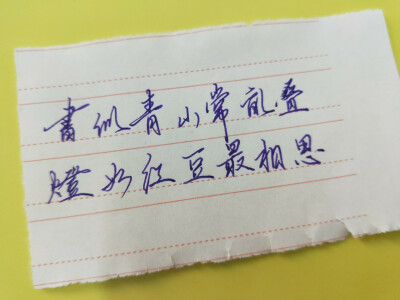 書似青山常亂叠
燈如红豆最相思